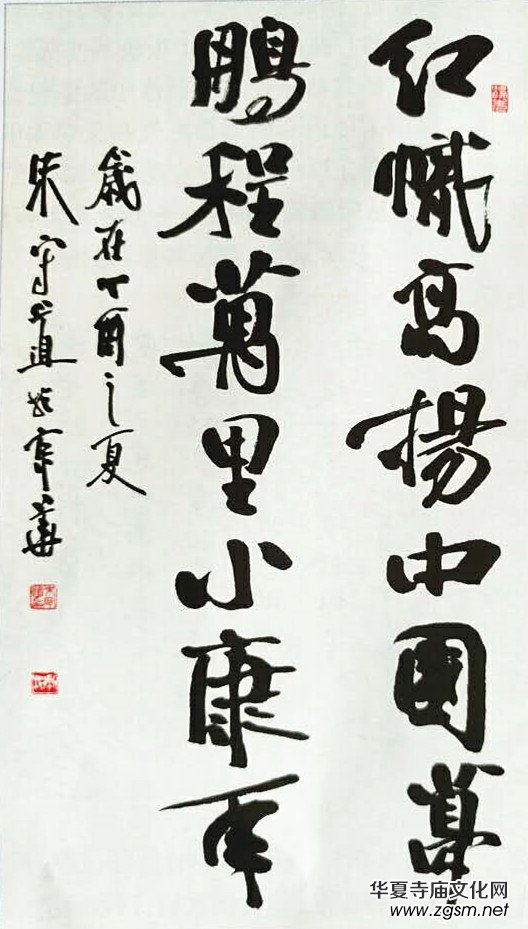 红帜高扬中国梦
鹏程萬里小康年
歲在丁酉之夏
朱守道於京華
华夏寺庙文化网
www.zgsm.net